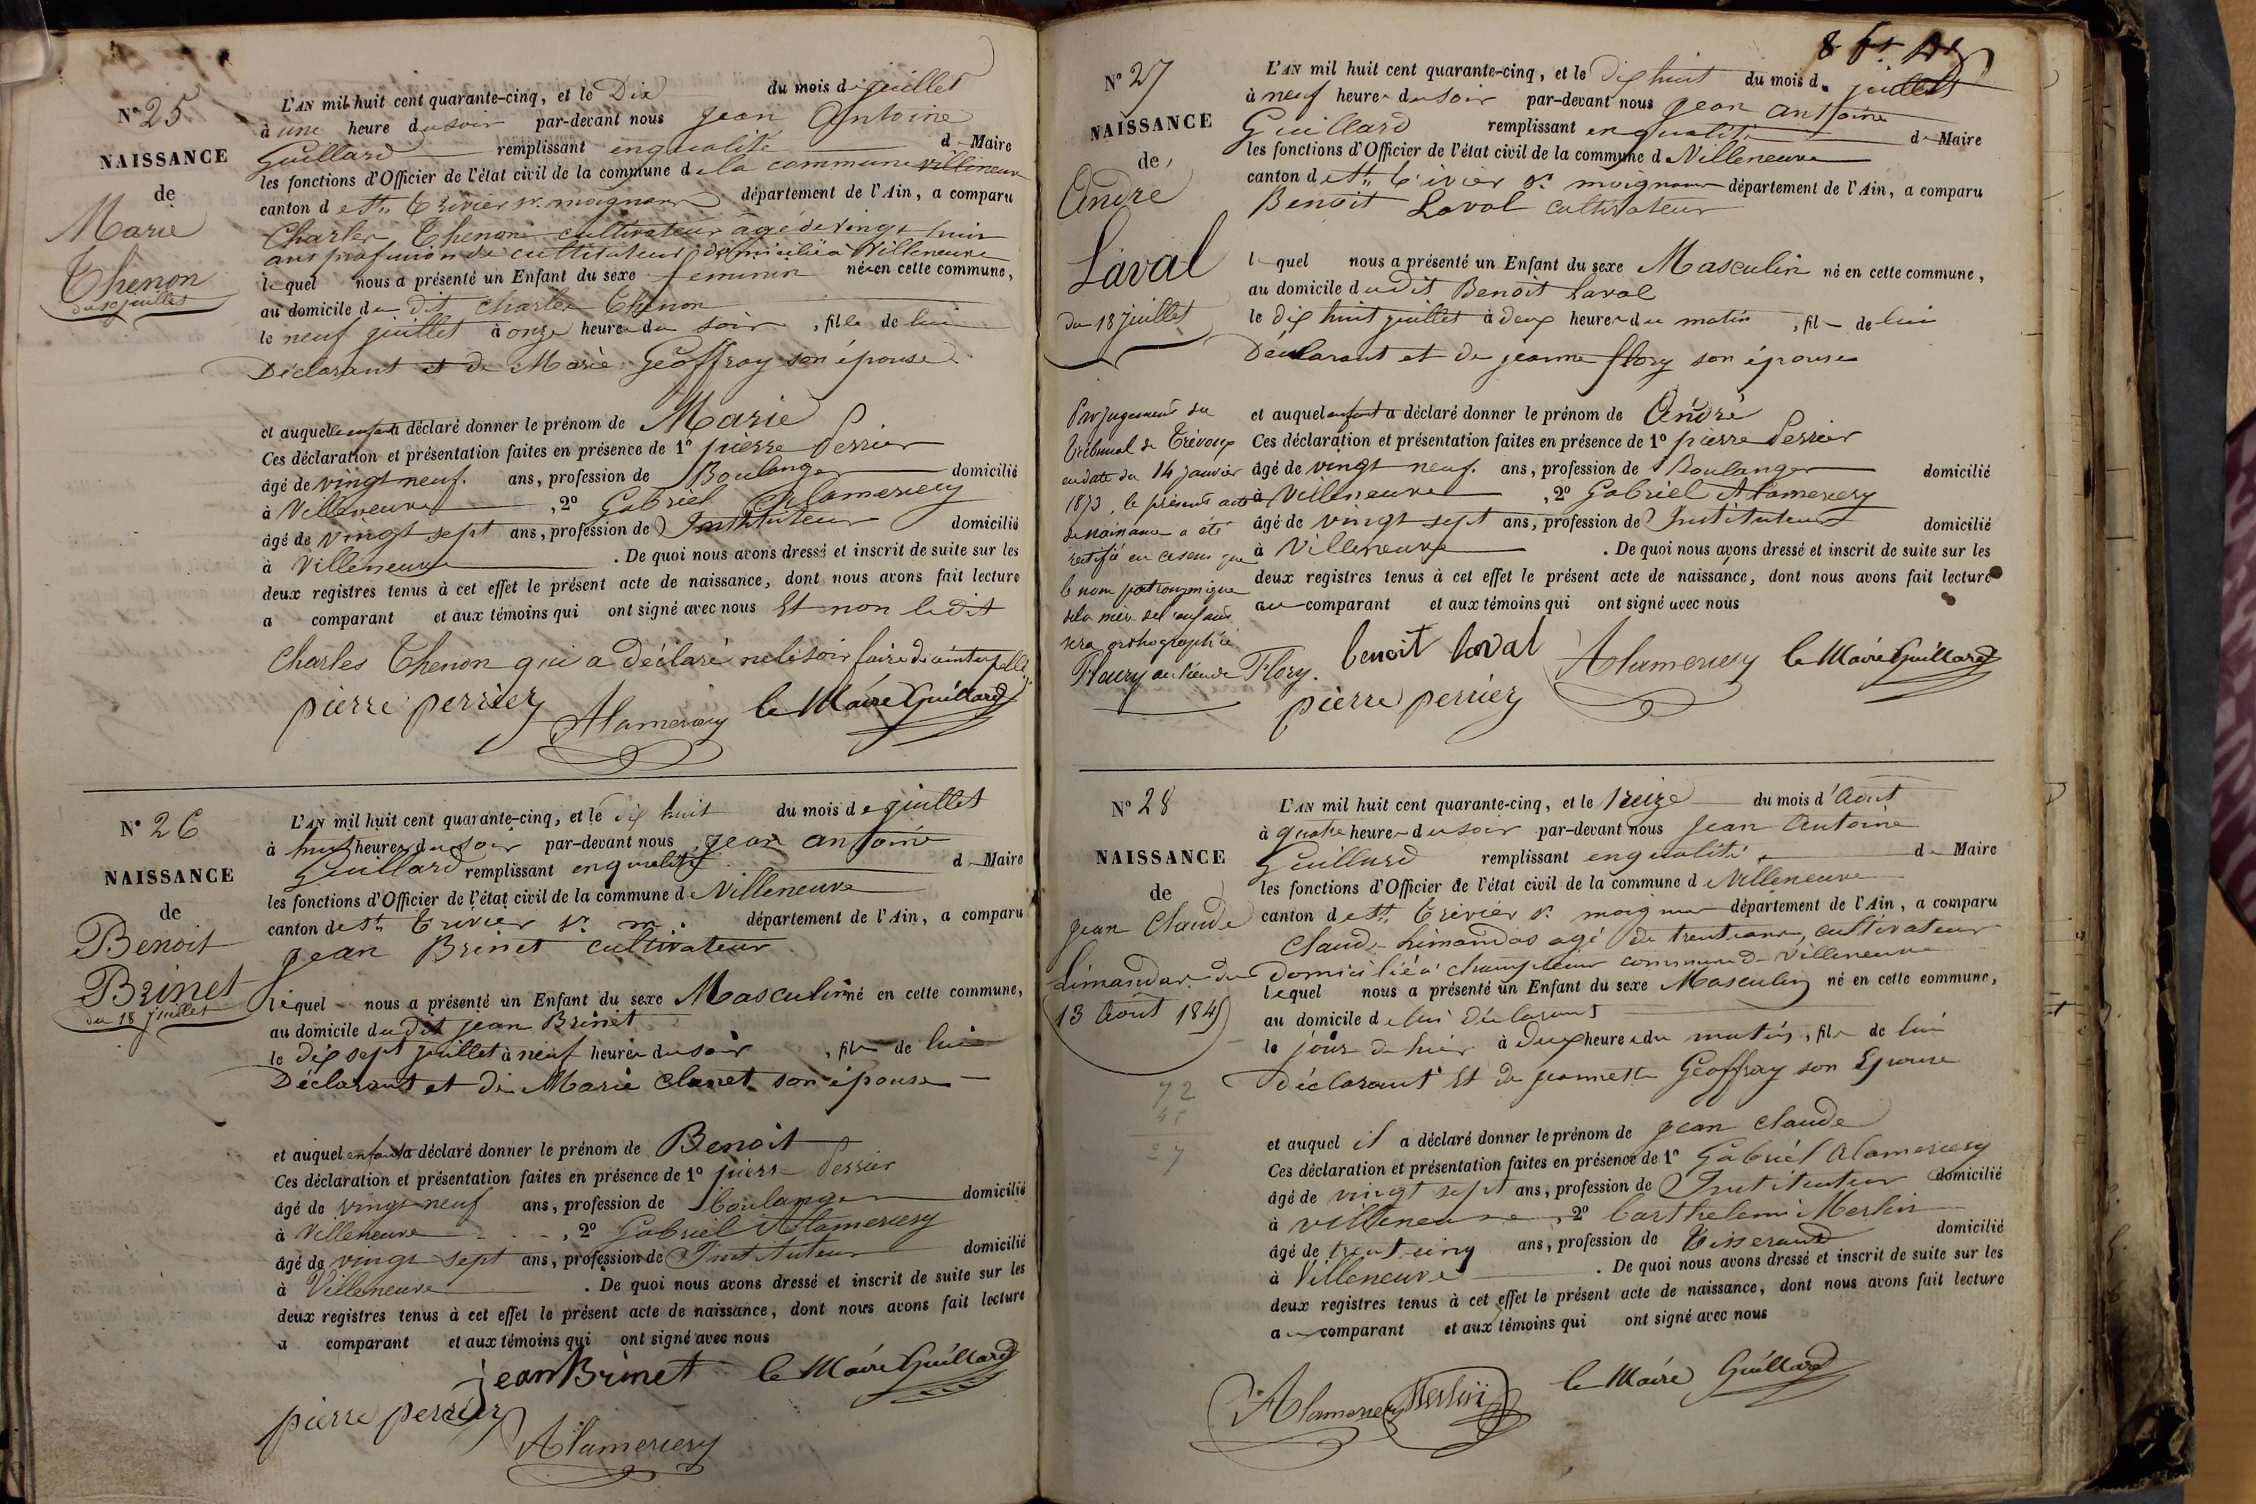 N° 25
NAISSANCE
de
Marie
Thenon
du 10 juillet
L'AN mil huit cent quarante-cinq, et le Dix du mois de juillet
à une heure du soir par-devant nous Jean Antoine
Guillard remplissant en qualité de Maire
les fonctions d'Officier de l'état civil de la commune de la commune villeneuve
canton de St Trivier sr moignans département de l'Ain, a comparu
Charles Thenon cultivateur âgé de vingt huit
ans profession de cultivateur domicilié à Villeneuve
lequel nous a présenté un Enfant du sexe feminin né en cette commune,
au domicile du dit Charles Thenon
le neuf juillet à onze heures du soir, fille de lui
Déclarant et de Marie Geoffray son épouse
et auquel enfant a déclaré donner le prénom de Marie
Ces déclaration et présentation faites en présence de 1° pierre Perrier
âgé de vingt neuf ans, profession de Boulanger domicilié
à Villeneuve, 2° Gabriel Alamercery
âgé de vingt sept ans, profession de Instituteur domicilié
à Villeneuve. De quoi nous avons dressé et inscrit de suite sur les
deux registres tenus à cet effet le présent acte de naissance, dont nous avons fait lecture
a comparant et aux témoins qui ont signé avec nous Et non ledit
Charles Thenon qui a déclaré ne le savoir faire de ce interpellé
pierre perrier Alamercery le Maire Guillard
N° 26
NAISSANCE
de
Benoit
Brinet
du 18 juillet
L'AN mil huit cent quarante-cinq, et le dix huit du mois de juillet
à huit heures du soir par-devant nous Jean antoine
Guillard remplissant en qualité de Maire
les fonctions d'Officier de l'état civil de la commune de Villeneuve
canton de St Trivier sr m. département de l'Ain, a comparu
Jean Brinet cultivateur
lequel nous a présenté un Enfant du sexe Masculin né en cette commune,
au domicile du dit jean Brinet
le dix sept juillet à neuf heures du soir, fils de lui
Déclarant et de Marie Clanet son épouse
et auquel enfant a déclaré donner le prénom de Benoit
Ces déclaration et présentation faites en présence de 1° pierre Perrier
âgé de vingt neuf ans, profession de boulanger domicilié
à Villeneuve, 2° Gabriel Alamercery
âgé de vingt sept ans, profession de Instituteur domicilié
à Villeneuve. De quoi nous avons dressé et inscrit de suite sur les
deux registres tenus à cet effet le présent acte de naissance, dont nous avons fait lecture
a comparant et aux témoins qui ont signé avec nous
jean Brinet le Maire Guillard
pierre perrier
Alamercery
N° 27
NAISSANCE
de
André
Laval
du 18 juillet
L'AN mil huit cent quarante-cinq, et le dix huit du mois de juillet
à neuf heures du soir par-devant nous Jean antoine
Guillard remplissant en qualité de Maire
les fonctions d'Officier de l'état civil de la commune de Villeneuve
canton de St Trivier sr moignans département de l'Ain, a comparu
Benoit Laval cultivateur
lequel nous a présenté un Enfant du sexe Masculin né en cette commune,
au domicile du dit Benoit Laval
le dix huit juillet à deux heures du matin, fils de lui
Déclarant et de jeanne flory son épouse
Par jugement du
tribunal de Trévoux
en date du 14 janvier
1873, le présent acte
de naissance a été
rectifié en ce sens que
le nom patronymique
de la mère de l'enfant
sera orthographié
Fleury au lieu de Flory.
et auquel enfant a déclaré donner le prénom de André
Ces déclaration et présentation faites en présence de 1° pierre Perrier
âgé de vingt neuf ans, profession de Boulanger domicilié
à Villeneuve, 2° Gabriel Alamercery
âgé de vingt sept ans, profession de Instituteur domicilié
à Villeneuve. De quoi nous avons dressé et inscrit de suite sur les
deux registres tenus à cet effet le présent acte de naissance, dont nous avons fait lecture
au comparant et aux témoins qui ont signé avec nous
benoit laval Alamercery le Maire Guillard
pierre perrier
N° 28
NAISSANCE
de
Jean Claude
Limandas du
13 Août 1845
72
45
27
L'AN mil huit cent quarante-cinq, et le treize du mois d'Août
à quatre heures du soir par-devant nous Jean Antoine
Guillard remplissant en qualité de Maire
les fonctions d'Officier de l'état civil de la commune de Villeneuve
canton de St Trivier sr moignans département de l'Ain, a comparu
Claude Limandas agé de trente ans, cultivateur
domicilié à commune de Villeneuve
lequel nous a présenté un Enfant du sexe Masculin né en cette commune,
au domicile de lui Déclarant
le jour de hier à deux heures du matin, fils de lui
déclarant Et de jeannette Geoffray son Epouse
et auquel il a déclaré donner le prénom de Jean Claude
Ces déclaration et présentation faites en présence de 1° Gabriel Alamercery
âgé de vingt sept ans, profession de Instituteur domicilié
à Villeneuve, 2° barthelemi Merlin
âgé de trent cinq ans, profession de Tisserand domicilié
à Villeneuve. De quoi nous avons dressé et inscrit de suite sur les
deux registres tenus à cet effet le présent acte de naissance, dont nous avons fait lecture
au comparant et aux témoins qui ont signé avec nous
Alamercery Merlin le Maire Guillard